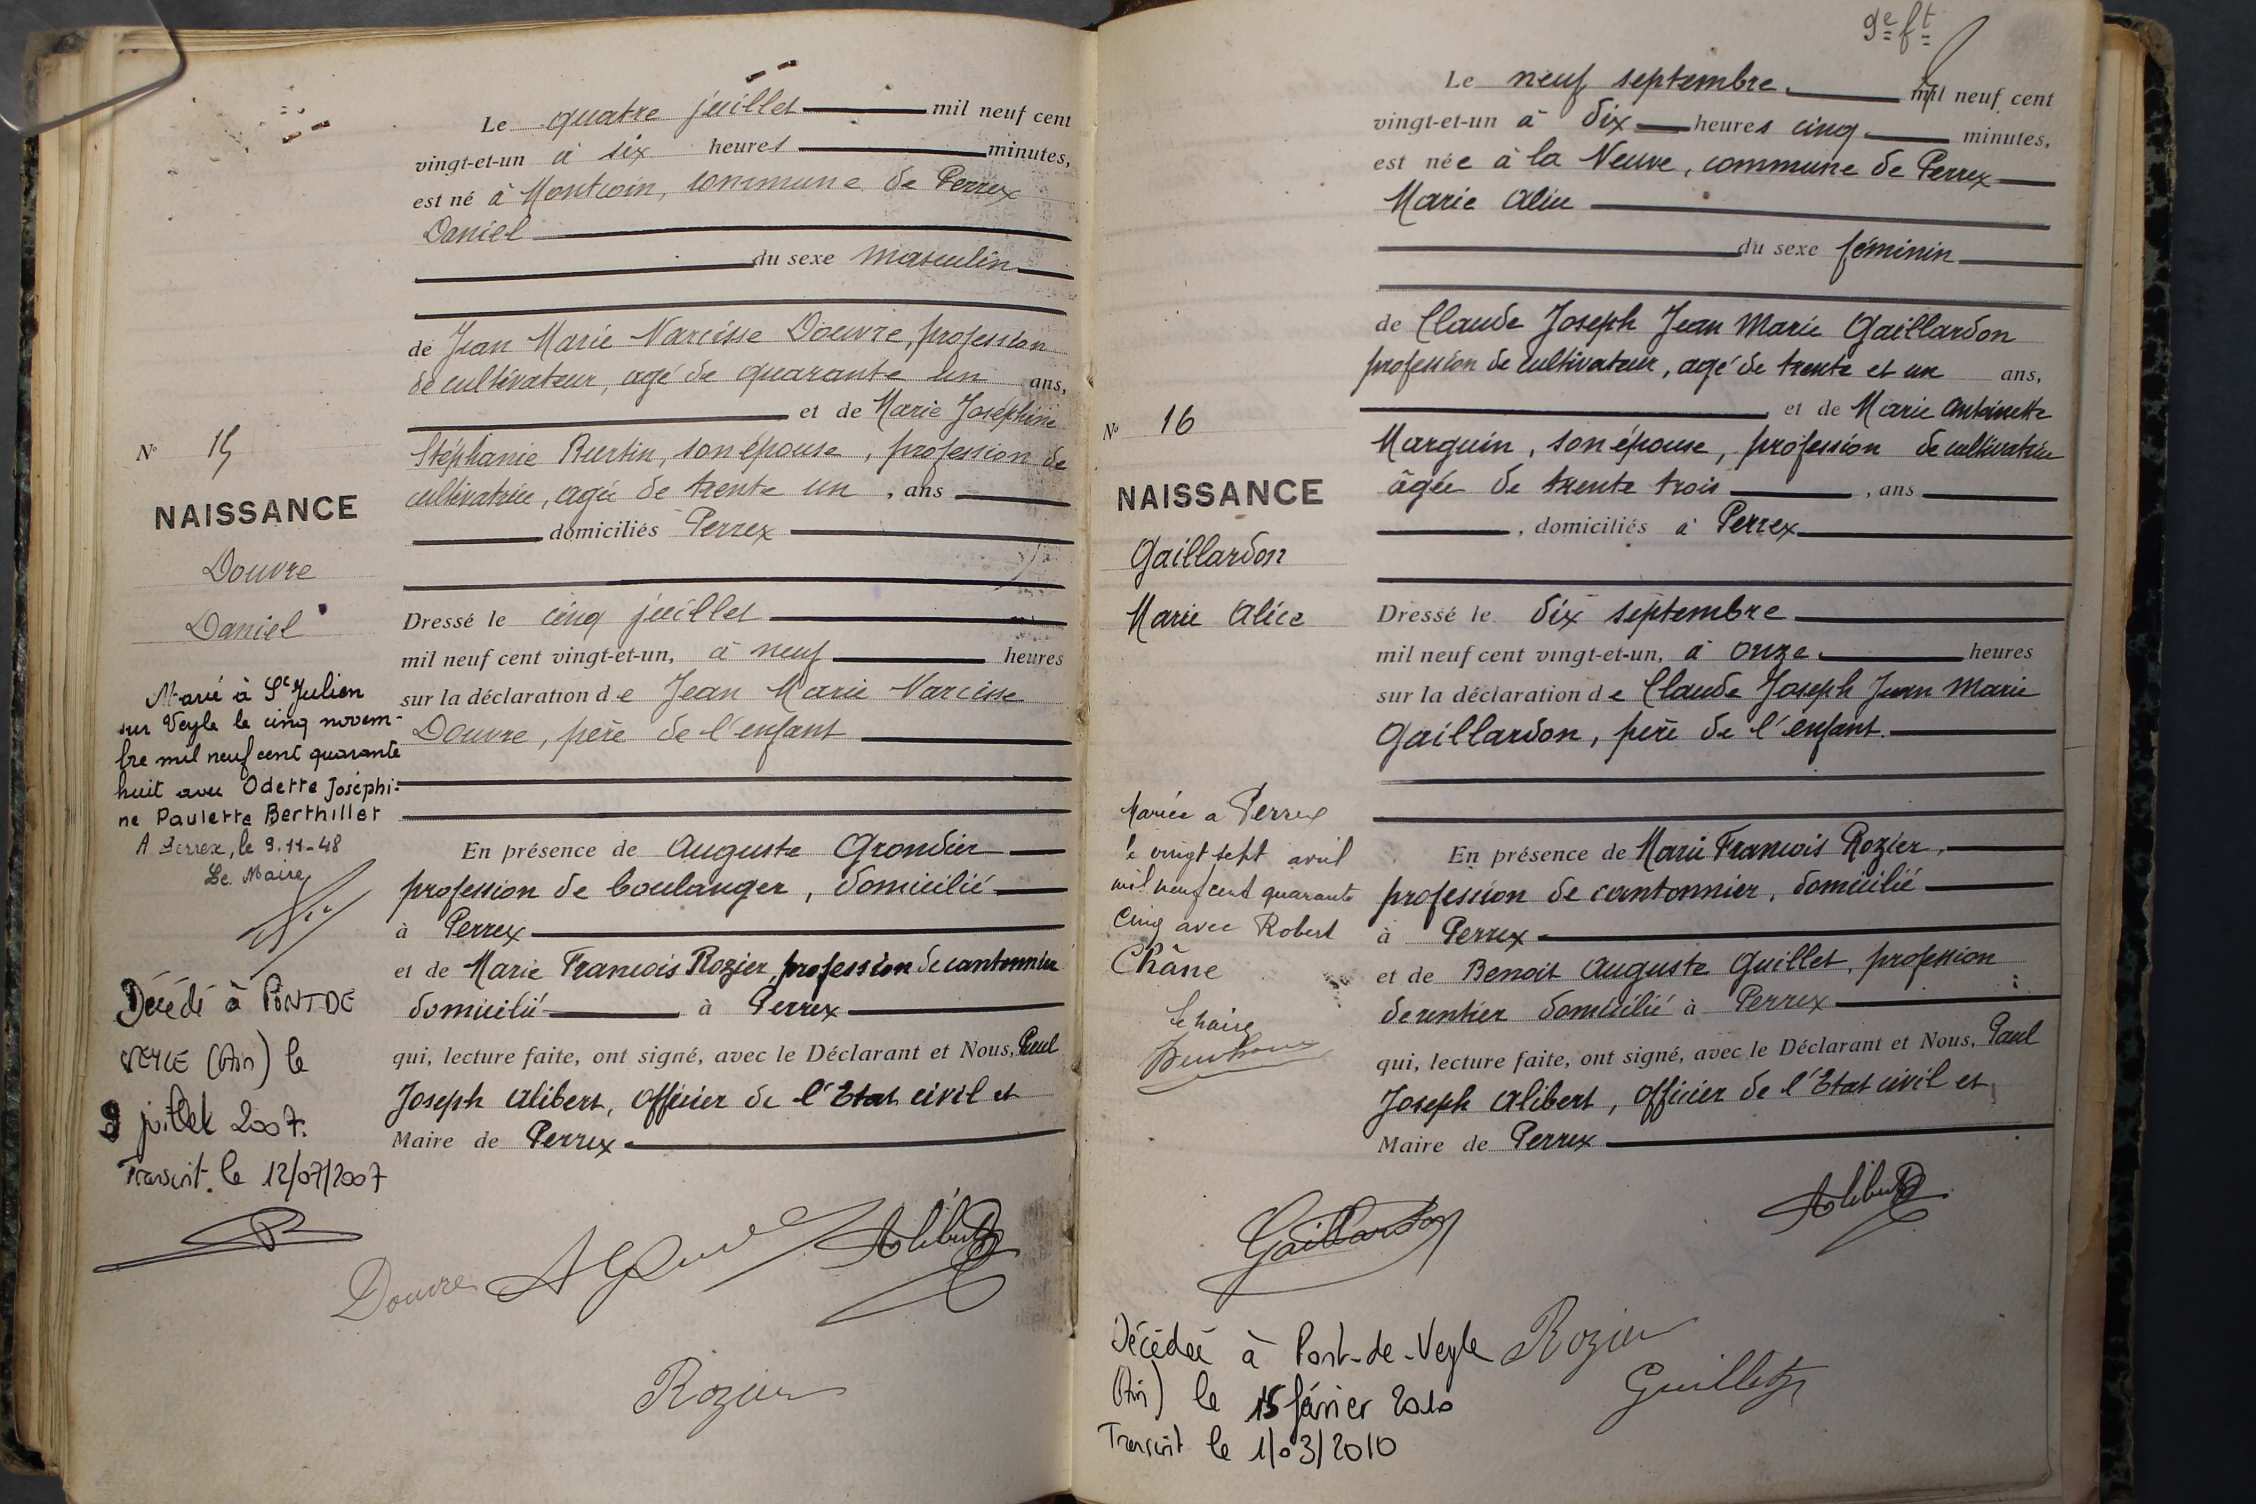 N° 15
NAISSANCE
Douvre
Daniel
Marié à St Julien
sur Veyle le cinq novem-
bre mil neuf cent quarante
huit avec Odette Joséphi-
ne Paulette Berthillet
A Perrex, le 9.11-48
Le Maire
Décédé à PONT DE
VEYLE (Ain) le
9 juillet 2007.
Transcrit le 12/07/2007
Le quatre juillet mil neuf cent
vingt-et-un à six heures minutes,
est né à Montcoin, commune de Perrex
Daniel
du sexe masculin
de Jean Marie Narcisse Douvre, profession
de cultivateur, agé de quarante un ans,
et de Marie Joséphine
Stéphanie Burtin, son épouse, profession de
cultivatrice, agée de trente un, ans
domiciliés Perrex
Dressé le cinq juillet
mil neuf cent vingt-et-un, à neuf heures
sur la déclaration de Jean Marie Narcisse
Douvre, père de l'enfant
En présence de Auguste Grondier
profession de boulanger, domicilié
à Perrex
et de Marie Francois Rozier, profession de cantonnier
domicilié à Perrex
qui, lecture faite, ont signé, avec le Déclarant et Nous, Paul
Joseph Alibert, officier de l'Etat civil et
Maire de Perrex
Douvre Alibert
Rozier
9e ft
N° 16
NAISSANCE
Gaillardon
Marie Alice
Mariée a Perrex
le vingt sept avril
mil neuf cent quarante
cinq avec Robert
Châne
Le Maire
Le neuf septembre mil neuf cent
vingt-et-un à dix heures cinq minutes,
est née à la Neuve, commune de Perrex
Marie Alice
du sexe féminin
de Claude Joseph Jean Marie Gaillardon
profession de cultivateur, agé de trente et un ans,
et de Marie Antoinette
Marguin, son épouse, profession de cultivatrice
âgée de trente trois, ans
, domiciliés à Perrex
Dressé le dix septembre
mil neuf cent vingt-et-un, à onze heures
sur la déclaration de Claude Joseph Jean Marie
Gaillardon, père de l'enfant.
En présence de Marie Francois Rozier,
profession de cantonnier, domicilié
à Perrex
et de Benoit Auguste Guillet, profession
de rentier domicilié à Perrex
qui, lecture faite, ont signé, avec le Déclarant et Nous, Paul
Joseph Alibert, officier de l'Etat civil et
Maire de Perrex
Gaillardon Alibert
Rozier
Guillet
Décédée à Pont-de-Veyle
(Ain) le 15 février 2010
Transcrit le 1/03/2010